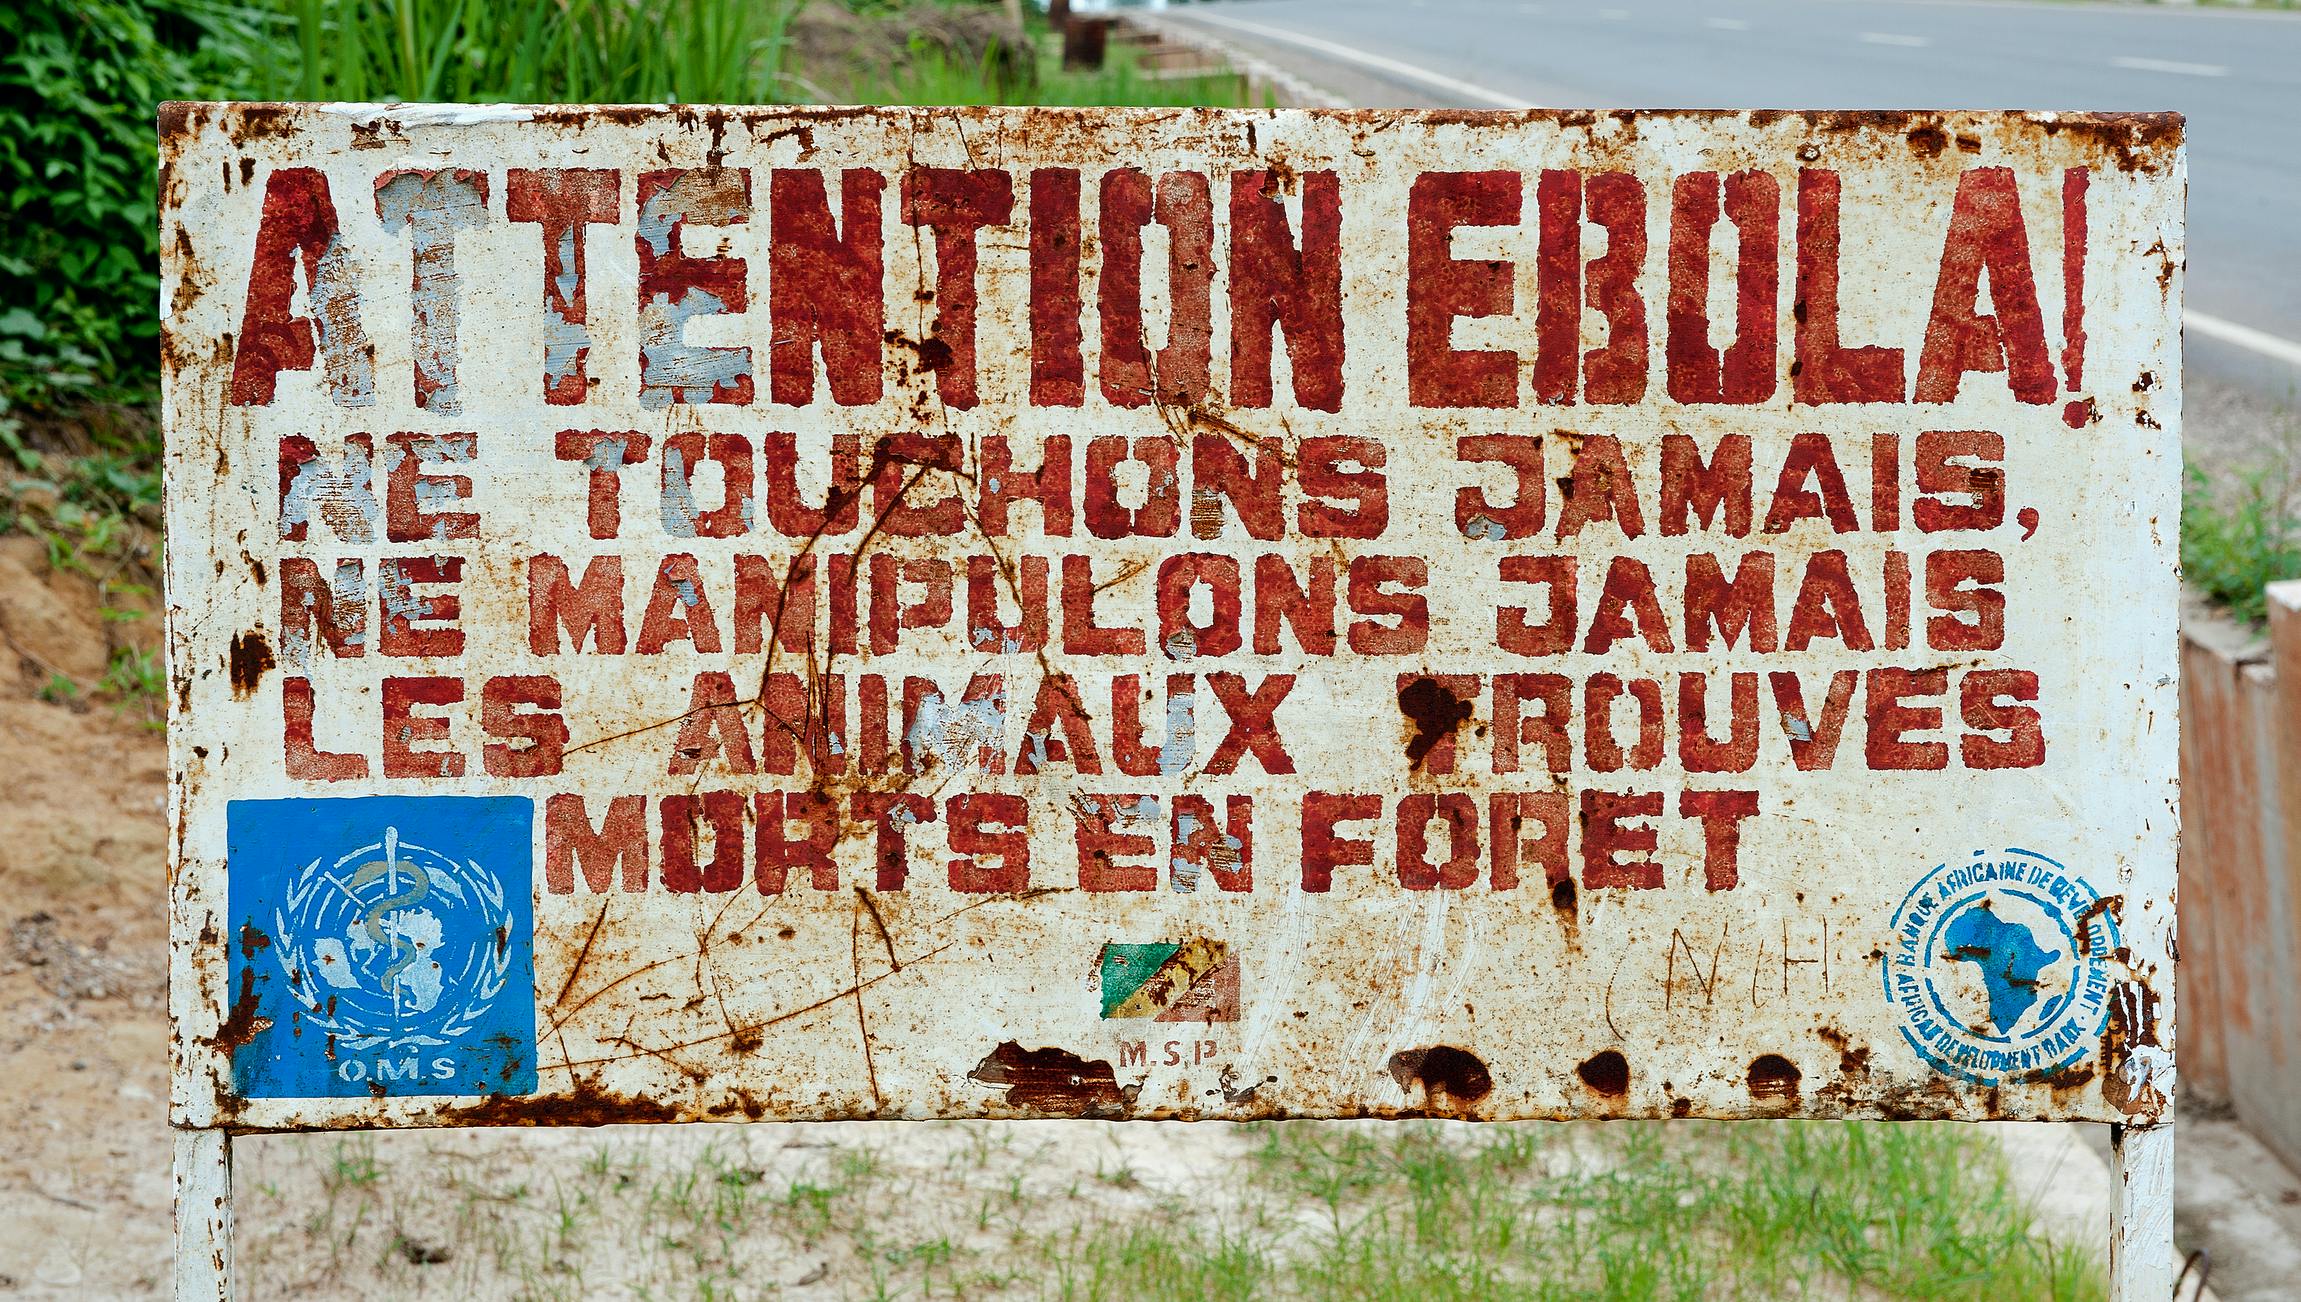 ATTENTION EBOLA!
NE TOUCHONS JAMAIS,
NE MANIPULONS JAMAIS
LES ANIMAUX TROUVES
MORTS EN FORET
O.M.S
M.S.P.
BANQUE AFRICAINE DE DEVELOPPEMENT
AFRICAN DEVELOPMENT BANK